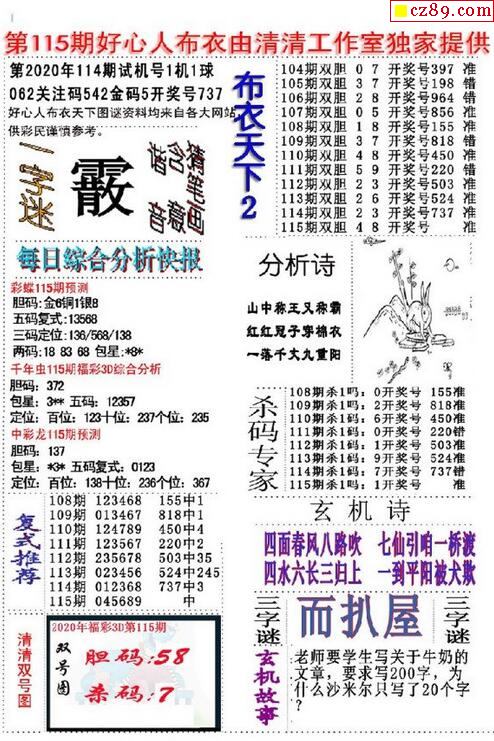 cz89.com
第115期好心人布衣由清清工作室独家提供
第2020年114期试机号1机1球
062关注码542金码5开奖号737
好心人布衣天下图谜资料均来自各大网站
供彩民谨慎参考。
一字迷
霰
猜笔画
含意
谐音
布衣天下2
104期双胆 0 7 开奖号397 准
105期双胆 3 7 开奖号198 错
106期双胆 2 8 开奖号964 错
107期双胆 0 5 开奖号856 准
108期双胆 1 8 开奖号155 准
109期双胆 3 7 开奖号818 错
110期双胆 4 8 开奖号450 准
111期双胆 5 9 开奖号220 错
112期双胆 2 3 开奖号503 准
113期双胆 2 6 开奖号524 准
114期双胆 2 3 开奖号737 准
115期双胆 4 8 开奖号 准
每日综合分析快报
彩蝶115期预测
胆码:金6铜1银8
五码复式:13568
三码定位:136/568/138
两码:18 83 68 包星:*8*
千年虫115期福彩3D综合分析
胆码: 372
包星: 3** 五码: 12357
定位: 百位: 123十位: 237个位: 235
中彩龙115期预测
胆码: 137
包星: *3* 五码复式: 0123
定位: 百位: 138十位: 236个位: 367
分析诗
山中称王又称霸
红红冠子穿棉衣
一落千丈九重阳
杀码专家
108期杀1码: 0开奖号 155准
109期杀1码: 2开奖号 818准
110期杀1码: 6开奖号 450准
111期杀1码: 0开奖号 220错
112期杀1码: 1开奖号 503准
113期杀1码: 9开奖号 524准
114期杀1码: 7开奖号 737错
115期杀1码: 1开奖号 准
复式推荐
108期 123468 155中1
109期 013467 818中1
110期 124789 450中4
111期 123567 220中2
112期 235678 503中35
113期 023456 524中245
114期 012368 737中3
115期 045689 中
玄机诗
四面春风八路吹 七仙引咱一桥渡
四水六长三归上 一到平阳被犬欺
清清双号图
2020年福彩3D第115期
双号图
胆码:58
杀码:7
三字谜
而扒屋
三字谜
玄机故事
老师要学生写关于牛奶的
文章，要求写200字，为
什么沙米尔只写了20个字
?